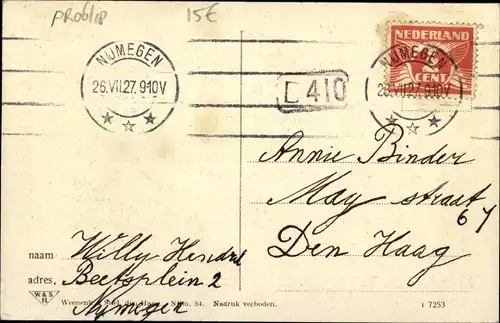 PRO61P 15€
NIJMEGEN
26.VII.27. 9-10V
C 410
NEDERLAND
CENT
NIJMEGEN
26.VII.27. 9-10V
Annie Binder
May straat
67
Den Haag
naam Willy Hendel
adres, Beetsplein 2
Nijmegen
W&S
H
den Haag. Nijm. 34. Nadruk verboden. 1 7253